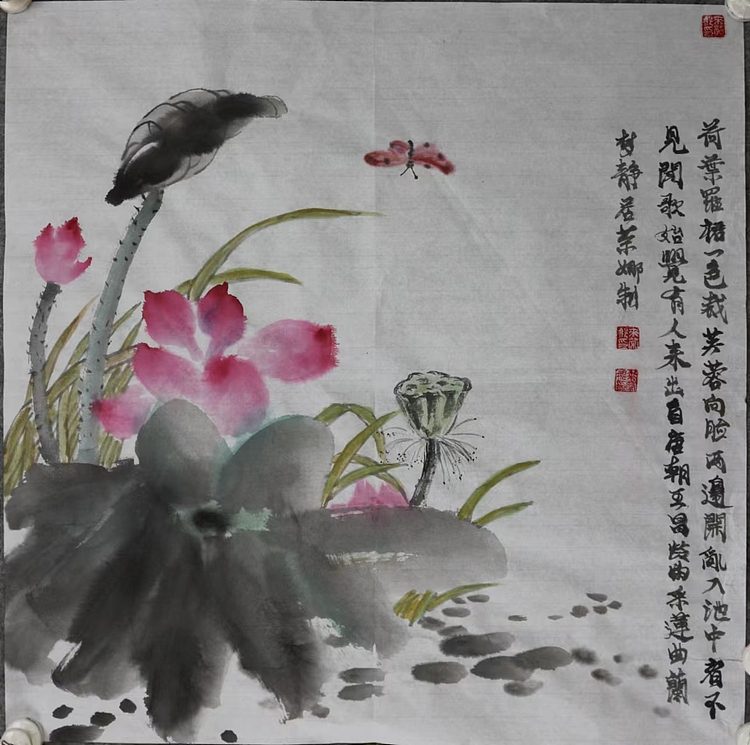 荷葉羅裙一色裁芙蓉向脸两邊開亂入池中看不
見聞歌始覺有人来出自唐朝王昌龄的采莲曲蘭
梦静居荣娜制